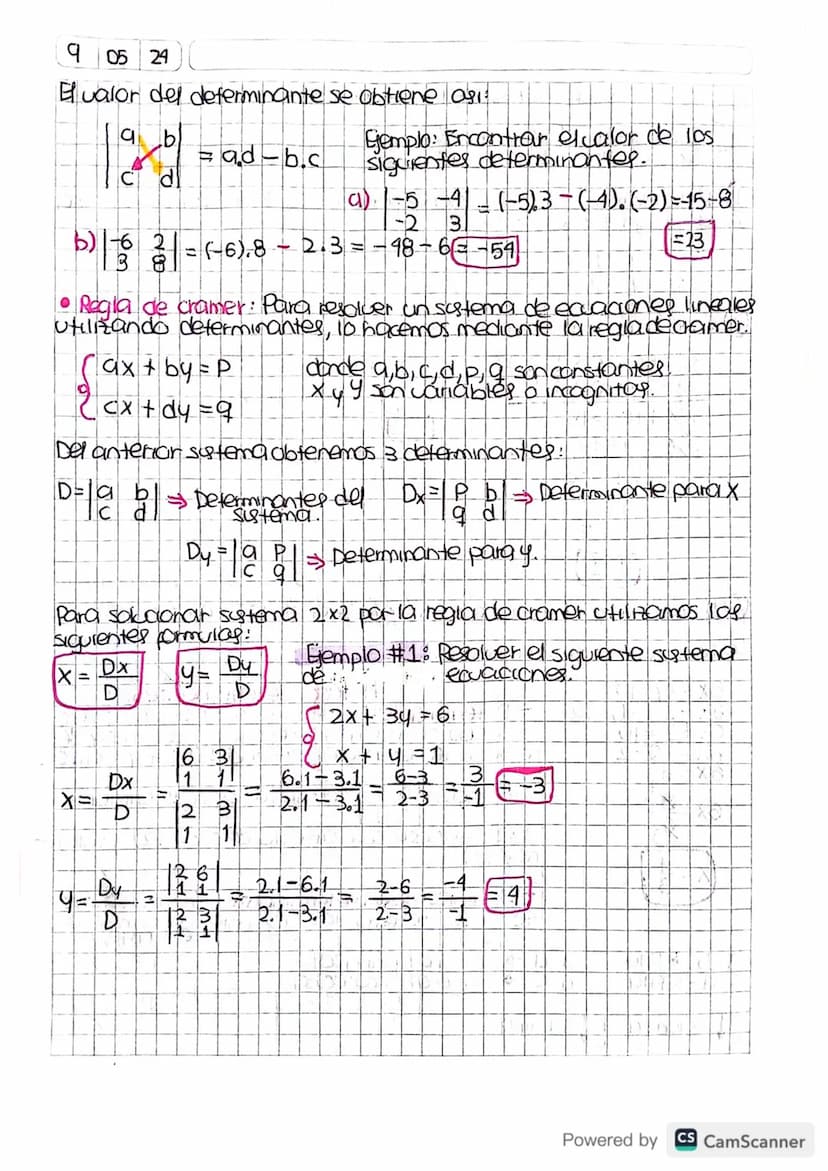 9 05 24
El valor del determinante se obtiene asi:
|a b| = a.d - b.c
|c d|
Ejemplo: Encontrar el valor de los
siguientes determinantes.
a) |-5 -4| = (-5).3 - (-4).(-2) = -15-8
|-2 3|
= 23
b) |-6 2| = (-6).8 - 2.3 = -48 - 6 = -54
|3 8|
• Regla de cramer: Para resolver un sistema de ecuaciones lineales
utilizando determinantes, lo hacemos mediante la regla de cramer.
{ ax + by = P
cx + dy = q
donde a,b,c,d,p,q son constantes
x y y son variables o incognitas.
Del anterior sistema obtenemos 3 determinantes:
D=|a b| ⇒ Determinantes del
|c d| sistema.
Dx=|P b| ⇒ Determinante para x
|q d|
Dy=|a P| ⇒ Determinante para y.
|c q|
Para solucionar sistema 2x2 por la regla de cramer utilizamos las
siguientes formulas:
x = Dx/D y = Dy/D
Ejemplo #1: Resolver el siguiente sistema
de: ecuaciones.
{ 2x + 3y = 6
x + y = 1
x = Dx/D = |6 3| |1 1| / |2 3| |1 1| = 6.1-3.1 / 2.1-3.1 = 6-3 / 2-3 = 3/-1 = -3
y = Dy/D = |2 6| |1 1| / |2 3| |1 1| = 2.1-6.1 / 2.1-3.1 = 2-6 / 2-3 = -4/-1 = 4
Powered by CS CamScanner